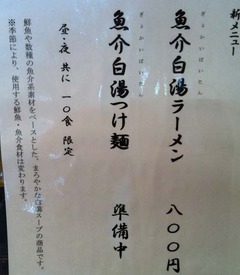 新メニュー
ぎょかいぱいたん
魚介白湯ラーメン 八〇〇円
ぎょかいぱいたん
魚介白湯つけ麺 準備中
昼・夜 共に 一〇食 限定
鮮魚や数種の魚介系素材をベースとした、まろやかな白湯スープの商品です。
※季節により、使用する鮮魚・魚介食材は変わります。